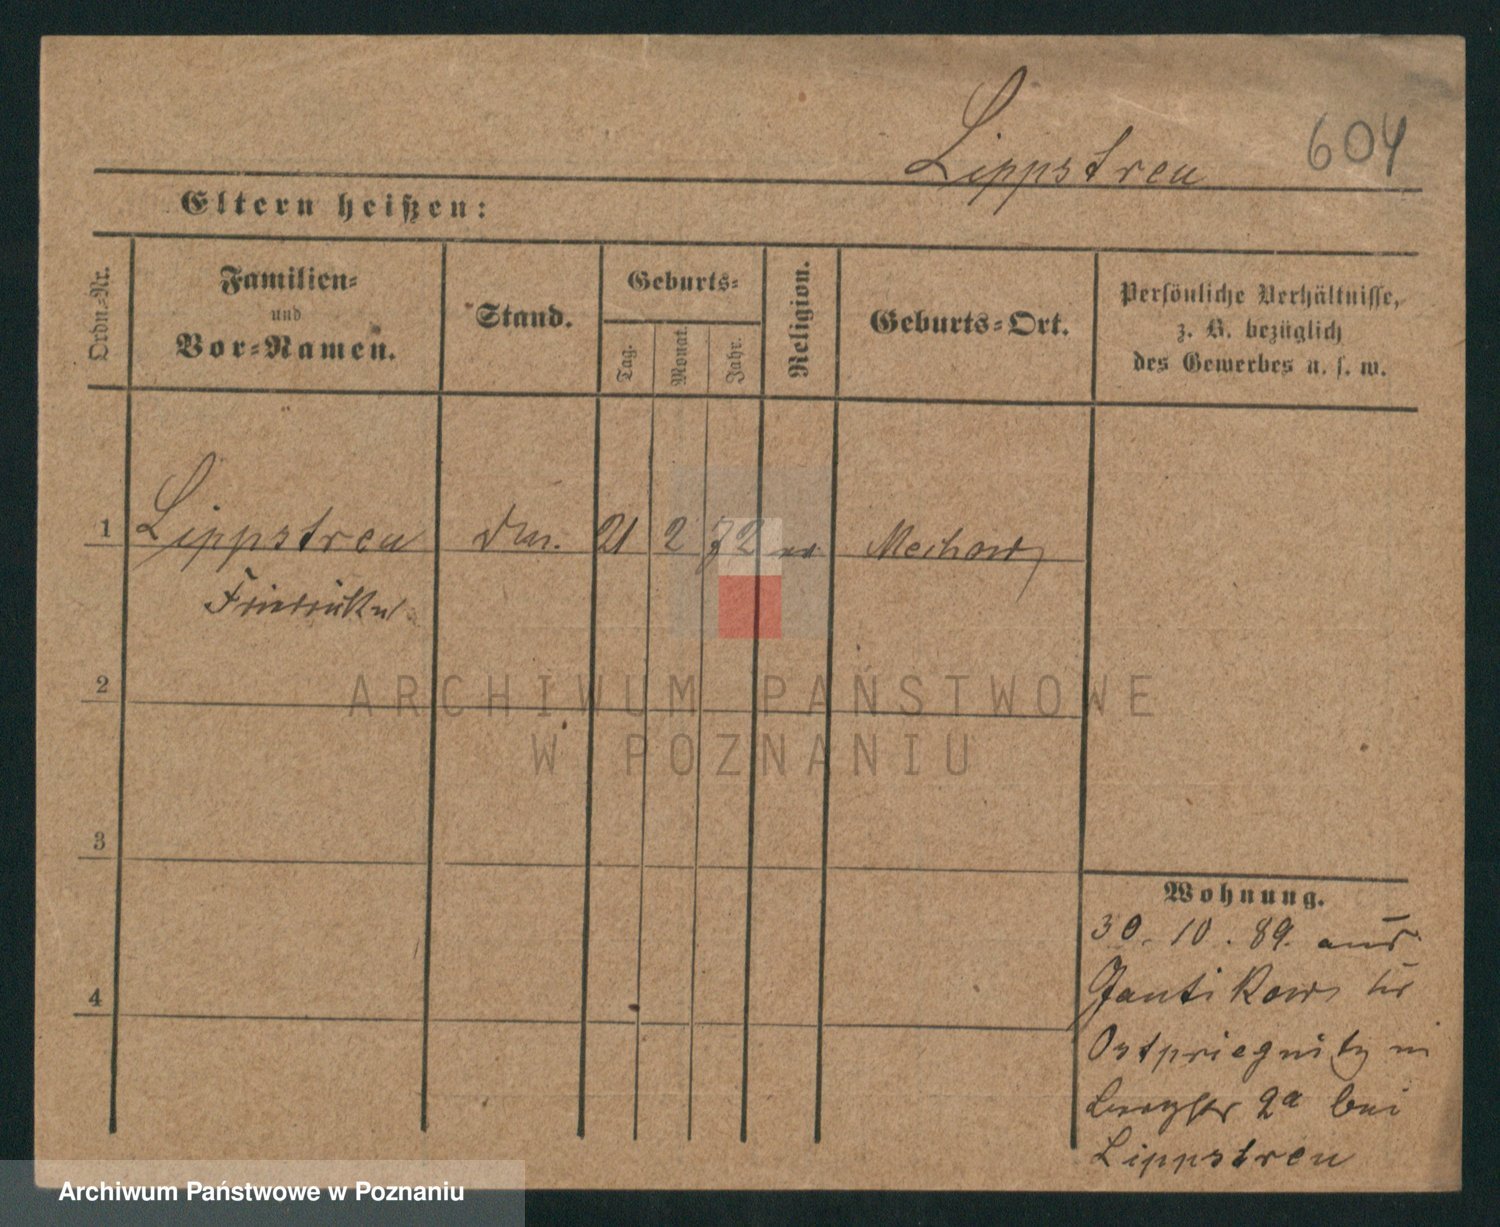 Lippstreu 604
Eltern heißen:
Ordn.-Nr.
Familien-
und
Vor-Namen.
Stand.
Geburts-
Tag.
Monat.
Jahr.
Religion.
Geburts-Ort.
Persönliche Verhältnisse,
z. B. bezüglich
des Gewerbes u. s. w.
1 Lippstreu 21 2 72 Mechow
Friederike
2
ARCHIWUM PAŃSTWOWE
W POZNANIU
3
4
Wohnung.
30. 10. 89. aus
Jantikow
Ostpriegnitz
2a bei
Lippstreu
Archiwum Państwowe w Poznaniu